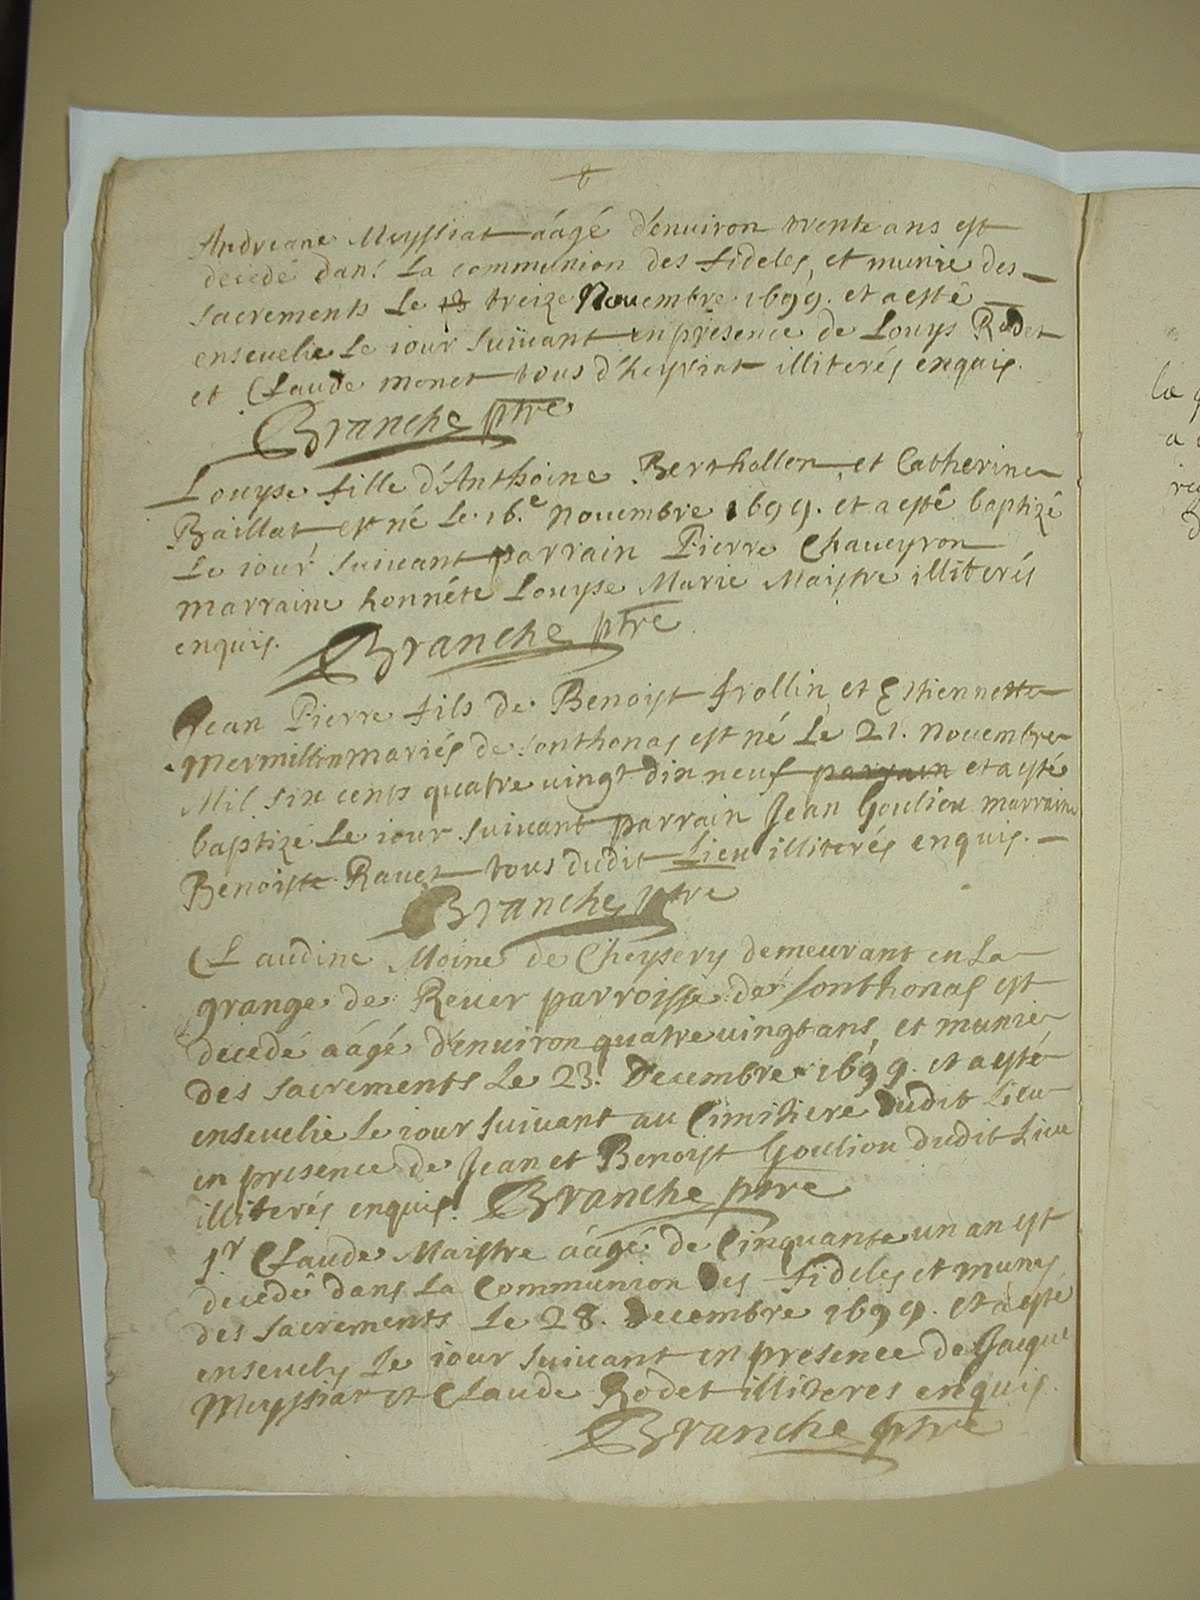 Andreane Meyssiat aágé d'enuiron trente ans est
decedé dans la communion des fideles, et munie des
sacrements le treize Nouembre 1699. et a esté
enseuelie le iour suiuant en presence de Louys Rodet
et Claude monet tous d'heyriat illiterés enquis.
Branche ptre
Louyse fille d'Anthoine Berthollon, et Catherine
Baillat est né le 16.e nouembre 1699. et a esté baptizé
le iour suiuant parrain Pierre Chaueyron
marraine honnéte Louyse Marie Maistre illiterés
enquis. Branche ptre
Jean Pierre fils de Benoist frollin, et Estiennette
Mermillon mariés de sonthonas est né le 21. nouembre
Mil six cents quatre uingt dix neuf parrain et a esté
baptizé le iour suiuant parrain Jean Goulion marraine
Benoiste Rauet tous dudit Lieu illiterés enquis.
Branche ptre
Claudine Moine de Cheysery demeurant en la
grange de Reuer parroisse de sonthonas est
decedé aágé d'enuiron quatre uingt ans, et munie
des sacrements le 23. Decembre 1699. et a esté
enseuelie le iour suiuant au Cimitiere dudit Lieu
en presence de Jean et Benoist Goulion dudit Lieu
illiterés enquis. Branche ptre
Sr Claude Maistre aágé de Cinquante un an est
decedé dans la Communion des fideles et muny
des sacrements le 28. Decembre 1699. et a esté
enseuely le iour suiuant en presence de Jacque
Meyssiat et Claude Rodet illiteres enquis.
Branche ptre